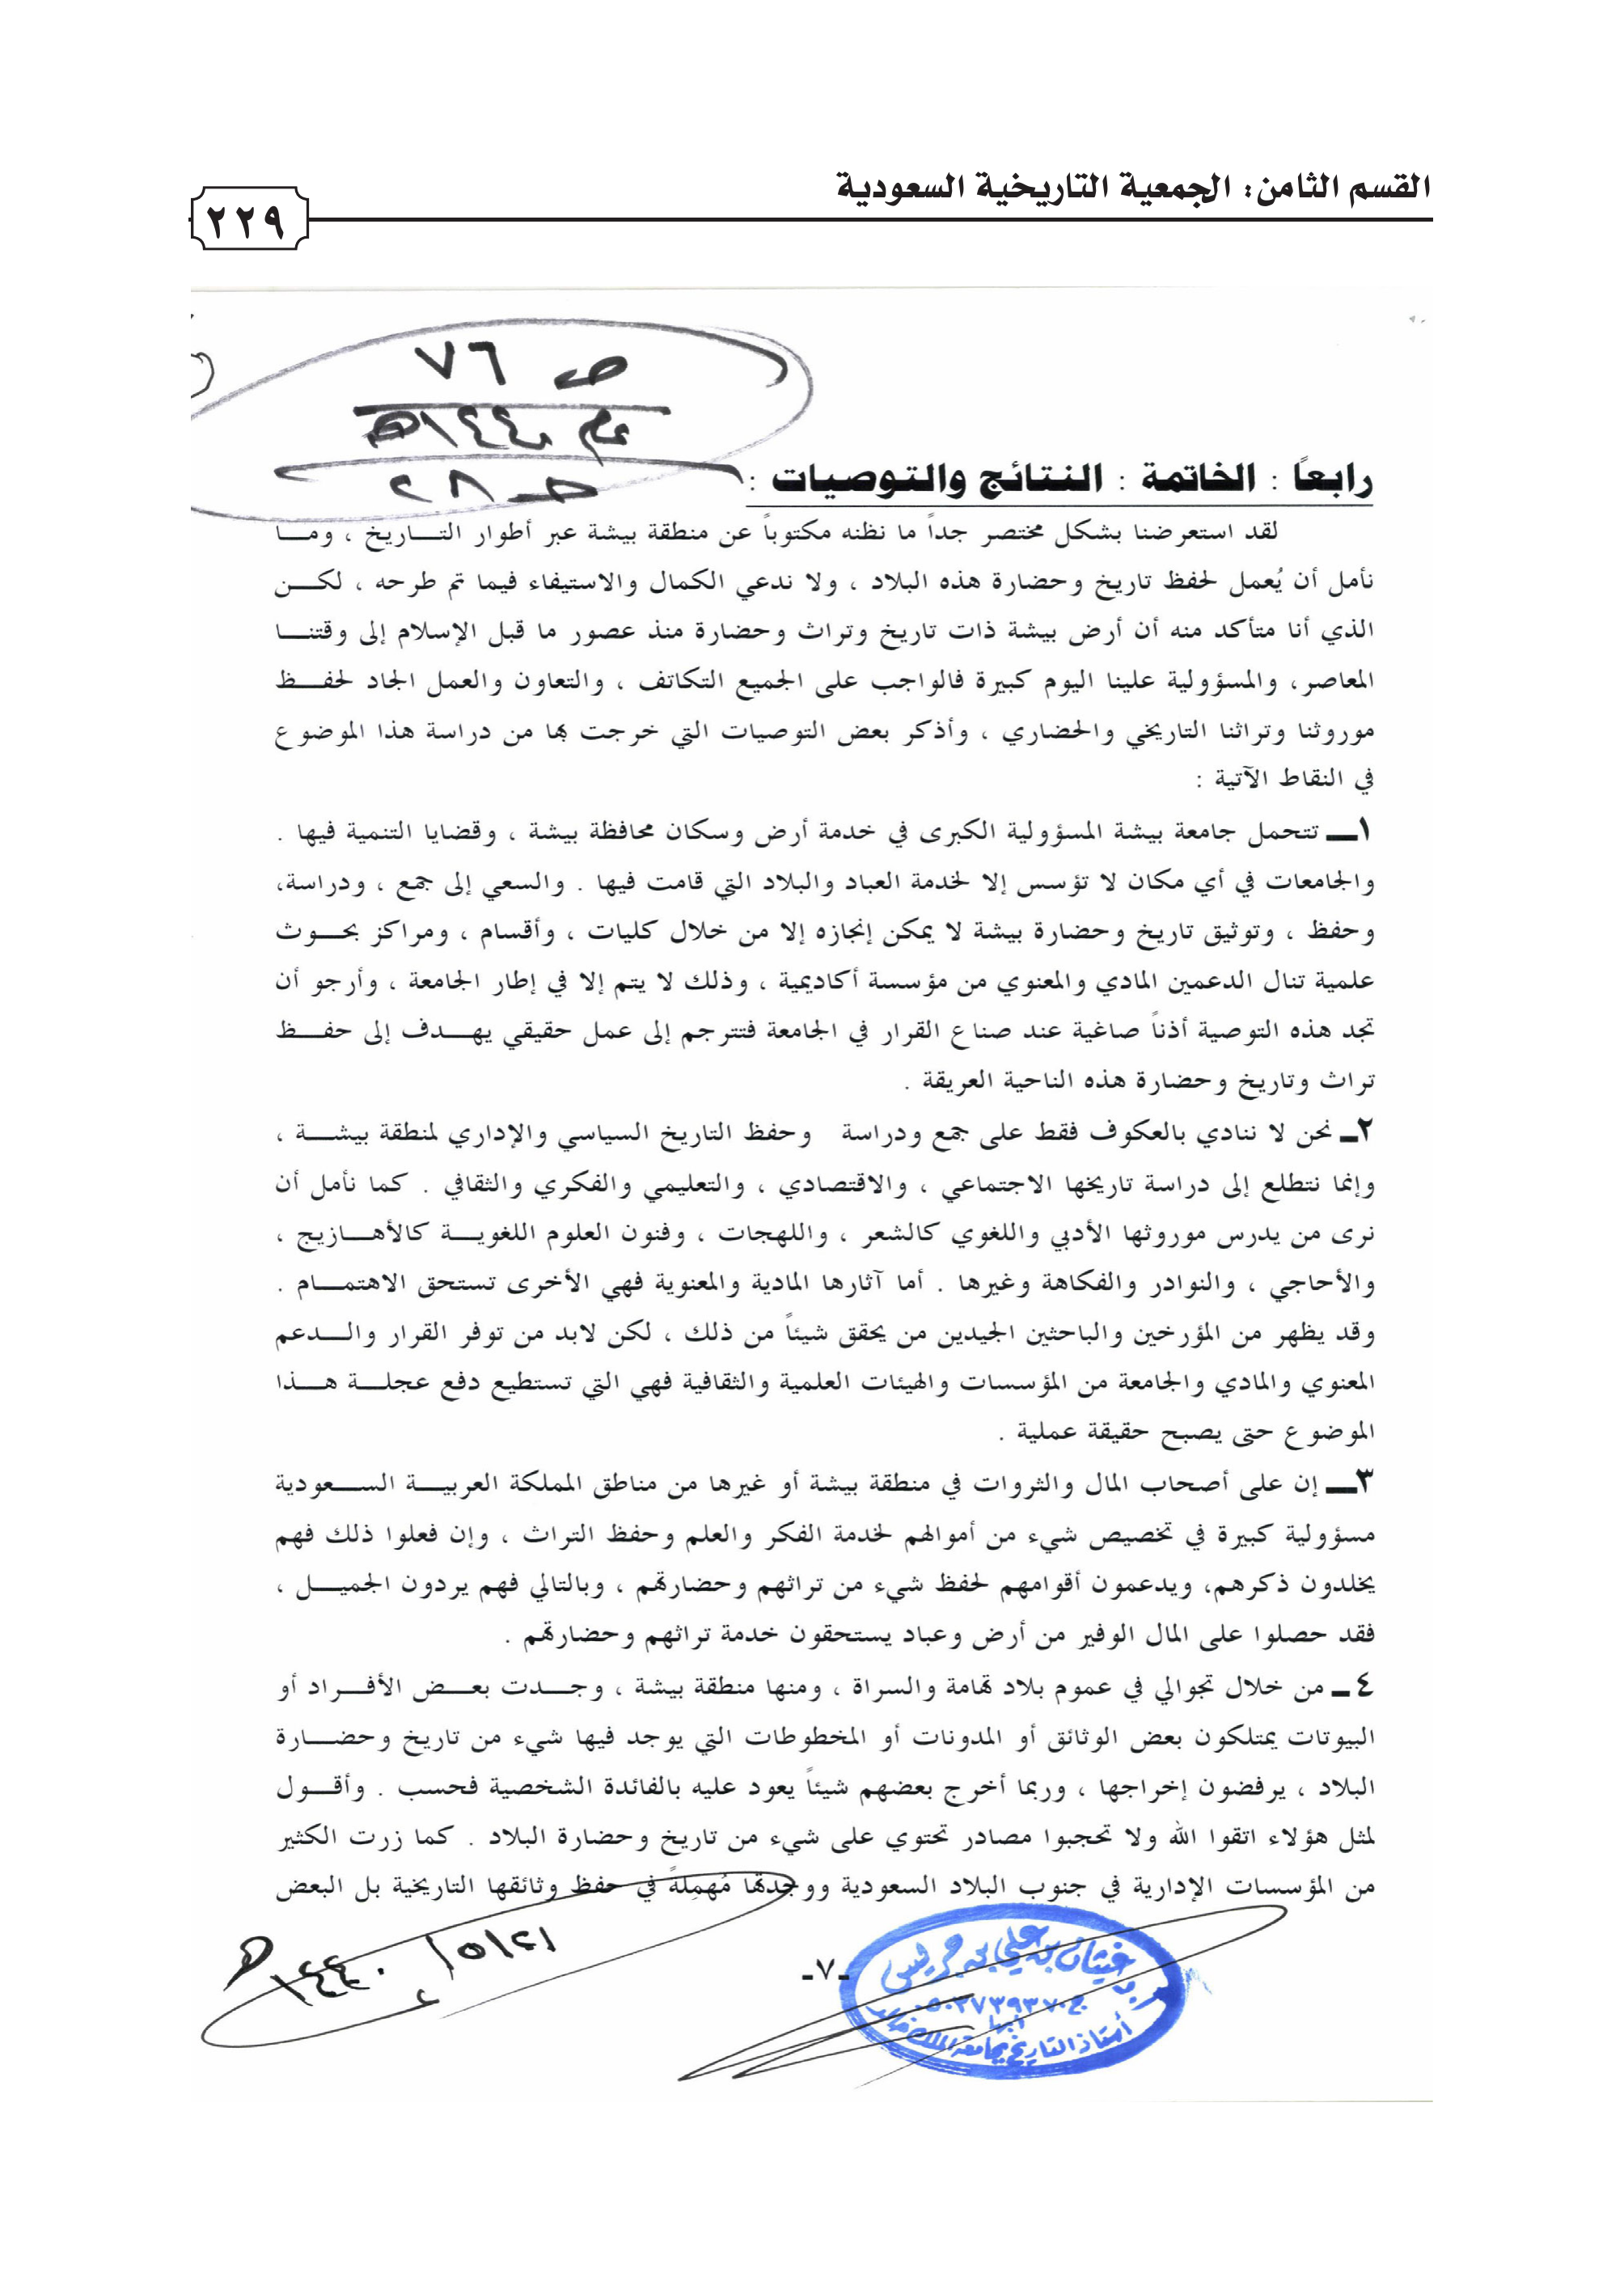 القسم الثامن: الجمعية التاريخية السعودية
٢٢٩
ص ٧٦
عام ١٤٤٠هـ
صـ ٢٨
رابعاً : الخاتمة : النتائج والتوصيات :
لقد استعرضنا بشكل مختصر جداً ما نظنه مكتوباً عن منطقة بيشة عبر أطوار التـاريخ ، ومـا
نأمل أن يُعمل لحفظ تاريخ وحضارة هذه البلاد ، ولا ندعي الكمال والاستيفاء فيما تم طرحه ، لكـن
الذي أنا متأكد منه أن أرض بيشة ذات تاريخ وتراث وحضارة منذ عصور ما قبل الإسلام إلى وقتنـا
المعاصر، والمسؤولية علينا اليوم كبيرة فالواجب على الجميع التكاتف ، والتعاون والعمل الجاد لحفـظ
موروثنا وتراثنا التاريخي والحضاري ، وأذكر بعض التوصيات التي خرجت بها من دراسة هذا الموضوع
في النقاط الآتية :
١ـ تتحمل جامعة بيشة المسؤولية الكبرى في خدمة أرض وسكان محافظة بيشة ، وقضايا التنمية فيها .
والجامعات في أي مكان لا تؤسس إلا لخدمة العباد والبلاد التي قامت فيها . والسعي إلى جمع ، ودراسة،
وحفظ ، وتوثيق تاريخ وحضارة بيشة لا يمكن إنجازه إلا من خلال كليات ، وأقسام ، ومراكز بحـوث
علمية تنال الدعمين المادي والمعنوي من مؤسسة أكاديمية ، وذلك لا يتم إلا في إطار الجامعة ، وأرجو أن
تجد هذه التوصية أذناً صاغية عند صناع القرار في الجامعة فتترجم إلى عمل حقيقي يهـدف إلى حفـظ
تراث وتاريخ وحضارة هذه الناحية العريقة .
٢ـ نحن لا ننادي بالعكوف فقط على جمع ودراسة وحفظ التاريخ السياسي والإداري لمنطقة بيشـة ،
وإنما نتطلع إلى دراسة تاريخها الاجتماعي ، والاقتصادي ، والتعليمي والفكري والثقافي . كما نأمل أن
نرى من يدرس موروثها الأدبي واللغوي كالشعر ، واللهجات ، وفنون العلوم اللغويـة كالأهـازيج ،
والأحاجي ، والنوادر والفكاهة وغيرها . أما آثارها المادية والمعنوية فهي الأخرى تستحق الاهتمـام .
وقد يظهر من المؤرخين والباحثين الجيدين من يحقق شيئاً من ذلك ، لكن لابد من توفر القرار والـدعم
المعنوي والمادي والجامعة من المؤسسات والهيئات العلمية والثقافية فهي التي تستطيع دفع عجلـة هـذا
الموضوع حتى يصبح حقيقة عملية .
٣ـ إن على أصحاب المال والثروات في منطقة بيشة أو غيرها من مناطق المملكة العربيـة السـعودية
مسؤولية كبيرة في تخصيص شيء من أموالهم لخدمة الفكر والعلم وحفظ التراث ، وإن فعلوا ذلك فهم
يخلدون ذكرهم، ويدعمون أقوامهم لحفظ شيء من تراثهم وحضارتهم ، وبالتالي فهم يردون الجميـل ،
فقد حصلوا على المال الوفير من أرض وعباد يستحقون خدمة تراثهم وحضارتهم .
٤ـ من خلال تجوالي في عموم بلاد تهامة والسراة ، ومنها منطقة بيشة ، وجـدت بعـض الأفـراد أو
البيوتات يمتلكون بعض الوثائق أو المدونات أو المخطوطات التي يوجد فيها شيء من تاريخ وحضـارة
البلاد ، يرفضون إخراجها ، وربما أخرج بعضهم شيئاً يعود عليه بالفائدة الشخصية فحسب . وأقـول
لمثل هؤلاء اتقوا الله ولا تحجبوا مصادر تحتوي على شيء من تاريخ وحضارة البلاد . كما زرت الكثير
من المؤسسات الإدارية في جنوب البلاد السعودية ووجدتها مُهمِلةً في حفظ وثائقها التاريخية بل البعض
ـ٧ـ
٢١/٥/١٤٤٠هـ
غيثان بن علي بن جريس
ج ٠٥٠٣٧٣٩٣٧٠
أبها
أستاذ التاريخ بجامعة الملك خالد